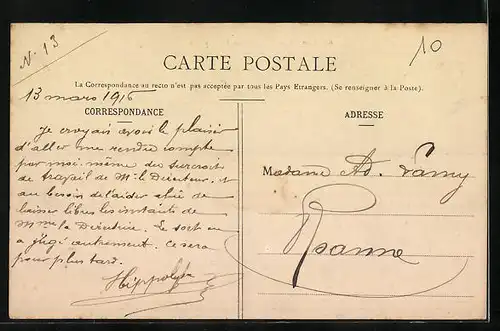 N. 13
10
CARTE POSTALE
La Correspondance au recto n'est pas acceptée par tous les Pays Etrangers. (Se renseigner à la Poste).
13 mars 1916
CORRESPONDANCE
ADRESSE
Je croyais avoir le plaisir
d'aller me rendre compte
par moi même du surcroit
de travail de Mr le Directeur, et
au besoin de l'aider afin de
laisser libres les instants de
Mme la Directrice. Le sort en
a jugé autrement. Ce sera
pour plus tard.
Hippolyte
Madame Ad. Lamy
Roanne